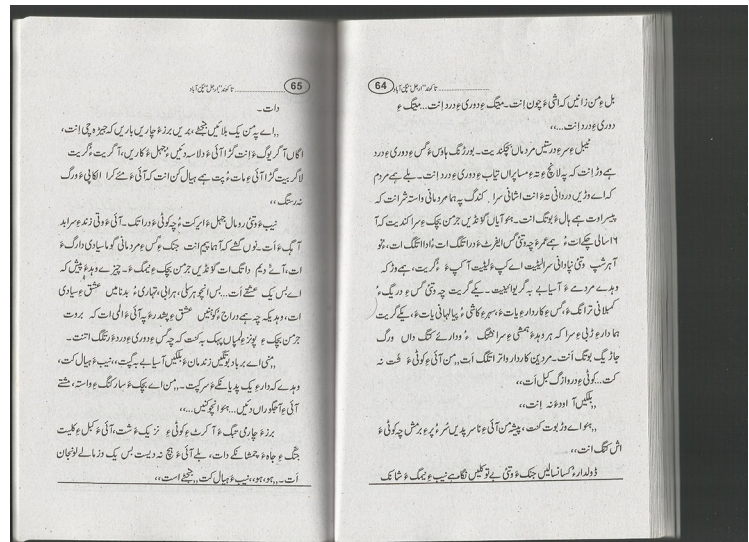 64 تاکبند "ارجل" نگن آباد
بل ءِ من زانیں کہ اشی ءَ چون اِنت۔ میتگ ءِ دوری ءِ درد اِنت... میتگ ءِ
دوری ءِ درد اِنت...،،
ٹیبل ءِ سر ءِ درستیں مردماں بچکندیت۔ بورڈنگ ہاؤس ءَ گس ءِ دوری ءِ درد
ہے وڑ اِنت کہ پہ لانچ ءِ تہ ءِ مسا پراں تیاب ءِ دوری ءِ درد اِنت۔ بلے ہے مردم
کہ اے وڑیں دردانی تہ ءَ انت اشانی سرا کندگ پہ ہما مردمانی واستہ شر انت کہ
پیسر اوت ہے ہال ءَ بوتگ انت۔ ہمو آیاں گونڈیں جرمن بچک ءِ سرا کندیت کہ آ
۱۶ سالی چکے ات ءُ ہے عمر ءَ چہ وتی گس ایفرٹ ءَ در اتلگ ات ءُ ادا اتلگ ات،
آ ہر شپ وتی نپادانی سرا لیٹیت اے کپ ءَ لیٹیت آ کپ ءَ ءُ گریت، ہے وڑ کہ
وہدے مردے ءَ آسیابے ءِ گر یوا لیٹیت۔ یکے گریت چہ وتی گس ءِ دریگ ءُ
کمبلانی ترانگ ءَ، گس ءِ کاردار ءِ یات ءَ، سبر ءِ کاشی ءُ پیالہانی یات ءَ، یکے گریت
ہما دار ءِ ٹپی ءِ سرا کہ ہر وہد ءَ ہمشی ءِ سرا نشتگ ءُ ودارے کتگ داں ورگ
جاڑیگ بوتگ اَنت۔ مردیں کاردار واتر اتلگ اَت، من آئی ءِ کوٹی ءَ شت نہ
کت... کوٹی ءِ دروازگ کبل اَت،،
،،بلکیں آ اودءَ نہ اِنت،،
،،ہمو اے وڑ بوت کنت، پیشہ من آئی ءِ ناسر پدیں سُر ءُ پُر ءِ برمش چہ کوٹی ءَ
اش کتگ انت،،
ڈولدار ءُ کسانسالیں جنک ءَ وتی بے تو کلیں نگاہے نیب ءِ نیمگ ءَ شانک
65 تاکبند "ارجل" نگن آباد
دات۔
،،اے پہ من یک بلائیں جنجلے، بریں برز ءَ چاریں باریں کہ جیڑہ چی اِنت،
اگاں آ گریوگ ءَ اِنت گڑا آئی ءَ دلاسہ دئیں ءُ جہل ءَ کاریں، آ گریت ءُ گریت
لا گر بیت گڑا آئی ءِ مات ءُ پت ہے ہیال کن انت کہ آئی ءَ مئے کرا الکاپی ءَ ورگ
نہ رستگ،،
نیب ءَ وتی رومال جہل ءَ ایر کت ءُ چہ کوٹی ءَ در اتک۔ آئی ءَ وتی زندءِ سرا بد
آہگ ءَ اَت۔ نوں گشے کہ آ ہما پیم انت جنک ءِ گس ءِ مردمانی گوما سیادی دارگ ءَ
ات، آئے دیم داتگ ات گونڈیں جرمن بچک ءِ نیمگ ءَ۔ چیزے وہد ءَ پیش کہ
اے بس یک عشقے اَت... بس انچو ہر سکلی، ہرابی، تہاری ءُ بدنامیں عشق ءِ سیادی
ات، وہدیکہ چہ ہے دراج ءُ گونٹیں عشق ءِ پشدر ءَ پہ آئی ءَ المی ات کہ بروت
جرمن بچک ءِ پونز ءِ لمپاں پہک بہ کنت کہ چہ گس ءِ دوری ءِ درد ءَ رتلگ اَتنت۔
،،منی اے برباد بوتگیں زندمان ءَ بلکیں آسیابے بہ گیت،، نیب ءَ ہیال کت،
وہدے کہ دار ءِ یک پدیانکے ءَ سر کپت۔ ،،من اے بچک ءَ سار کنگ ءِ واستہ، مشتے
آئی ءِ آ جگوراں دئیں... ہمو انچو کنیں...،،
برز ءَ چارمی تبگ ءَ آ کرٹ ءِ کوٹی ءِ نزیک ءَ شت، آئی ءَ کبل ءِ کلیت
جنگ ءِ جاہ ءَ چمشانکے دات، بلے آئی ءَ ہچ نہ دیست بس یک وز مالے لونجان
اَت۔ ،،ہو، ہو،، نیب ءَ ہیال کت ،،جنجلے است،،